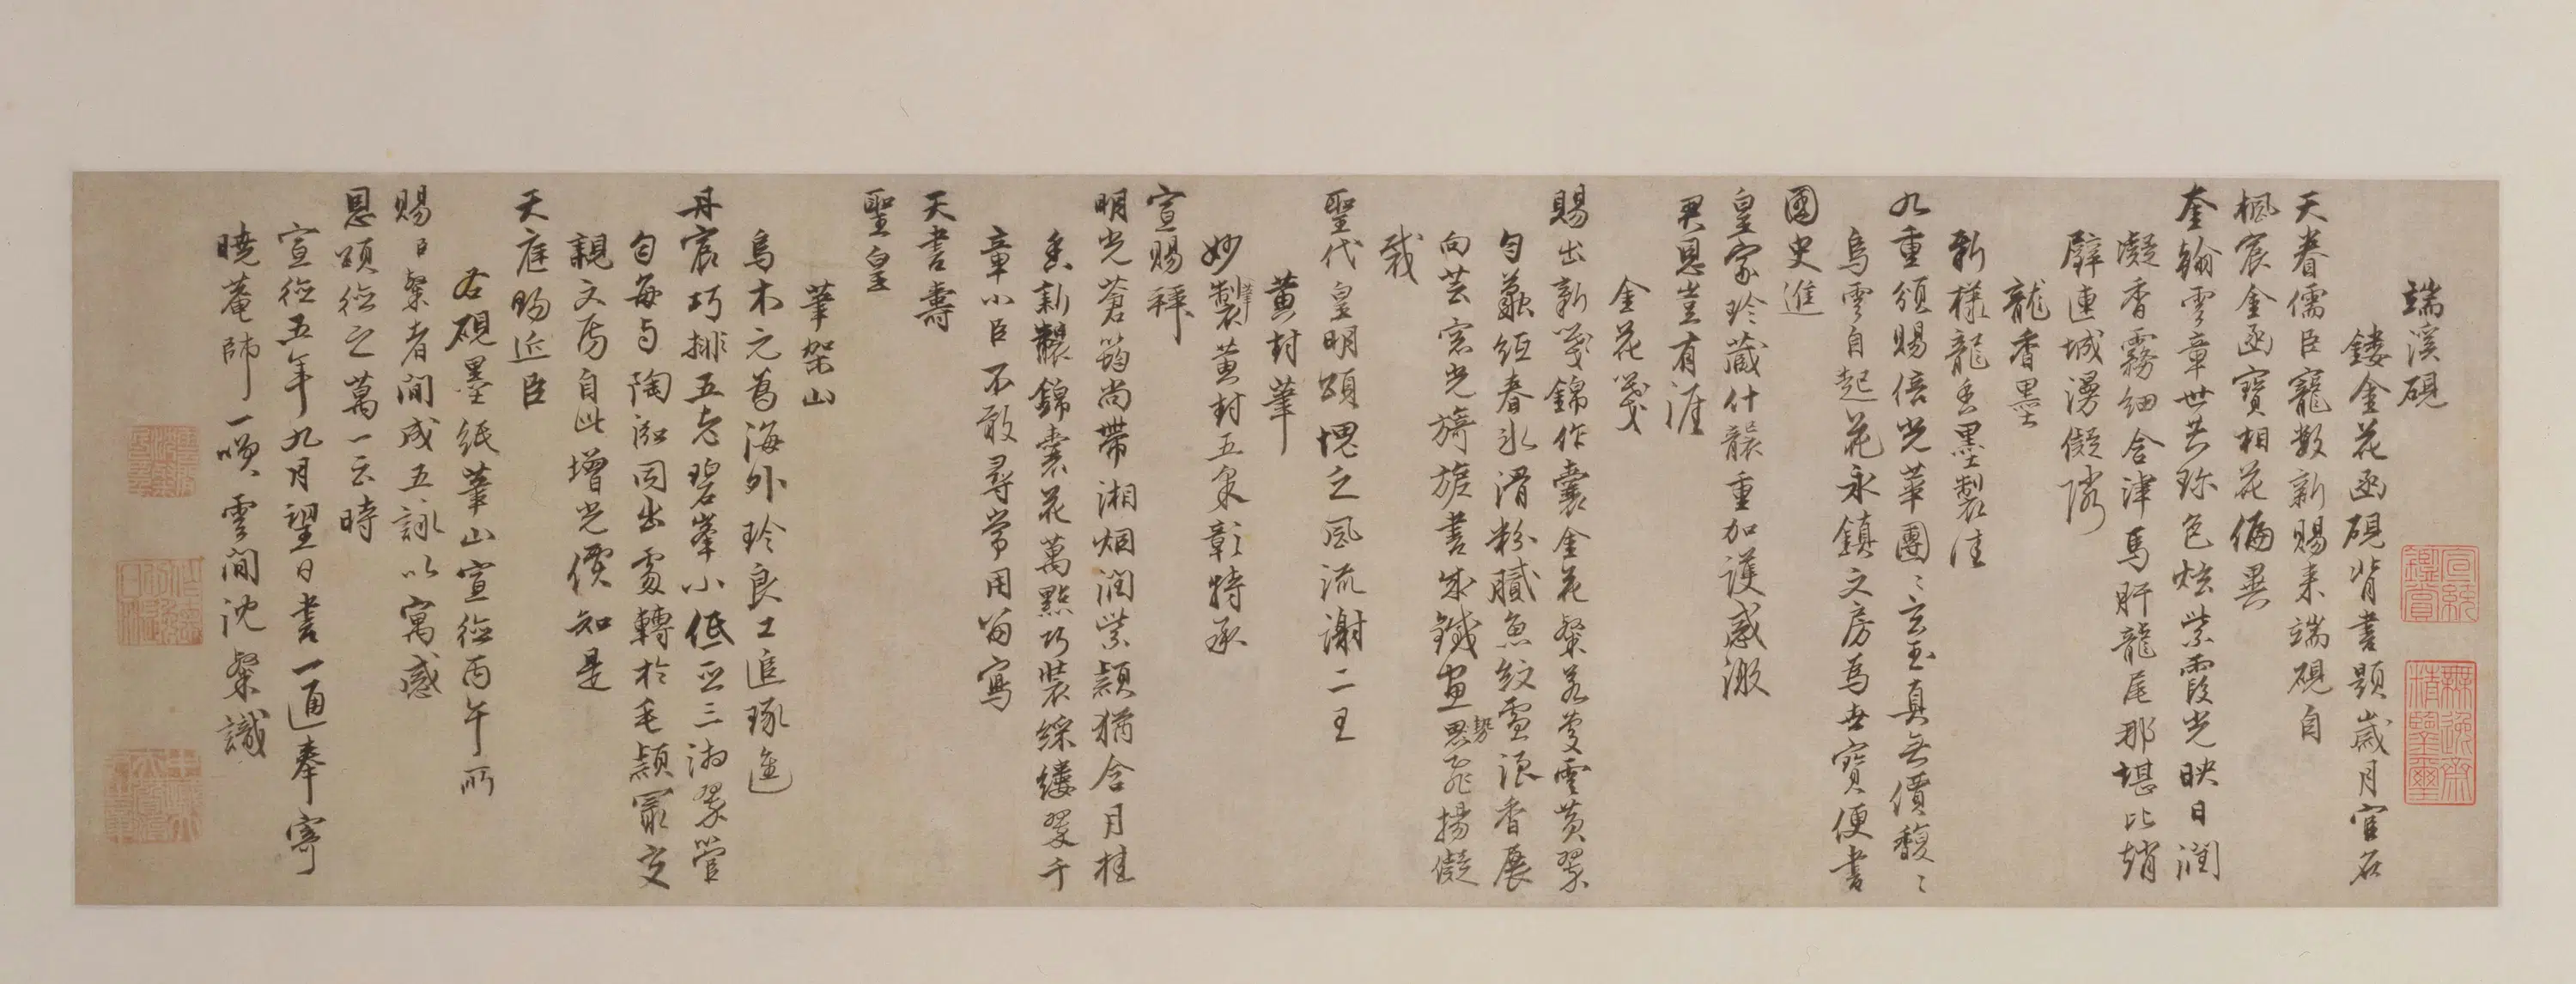 端溪硯
鏤金花函硯背書題歲月官名
天眷儒臣寵數新賜來端硯自
楓宸金函寶相花偏異
奎翰雲章世共珍色炫紫霞光映日潤
凝香霧細含津馬肝龍尾那堪比趙
璧連城漫儗隣
龍香墨
新樣龍香墨製佳
九重頒賜倍光華團〻玄玉真無價馥〻
烏雲自起花永鎮文房為世寶便書
國史進
皇家珍藏什襲重加護感激
君恩豈有涯
金花箋
賜出新箋錦作囊金花粲若蔓雲黃翠
勻蠶紙春冰滑粉膩魚紋雪浪香展
向芸窗光旖旎書成鐵畫勢飛揚儗
哉
聖代皇明頌愧乏風流謝二王
黃封筆
妙製筆黃封五采彰特承
宣賜拜
明光蒼筠尚帶湘烟潤紫穎猶含月桂
香新襲錦囊花萬點巧裝綵縷翠千
章小臣不敢尋常用留寫
天書壽
聖皇
筆架山
烏木元為海外珍良工追琢進
丹宸巧排五老碧峯小低亞三湘翠管
勻每與陶泓同出處轉於毛穎最交
親文房自此增光價知是
天庭賜近臣
右硯墨紙筆山宣德丙午所
賜臣粲者閒成五詠以寓感
恩頌德之萬一云時
宣德五年九月望日書一通奉寄
曉菴師一噗雲間沈粲識
宣統
鑑賞
無逸齋
精鑒璽